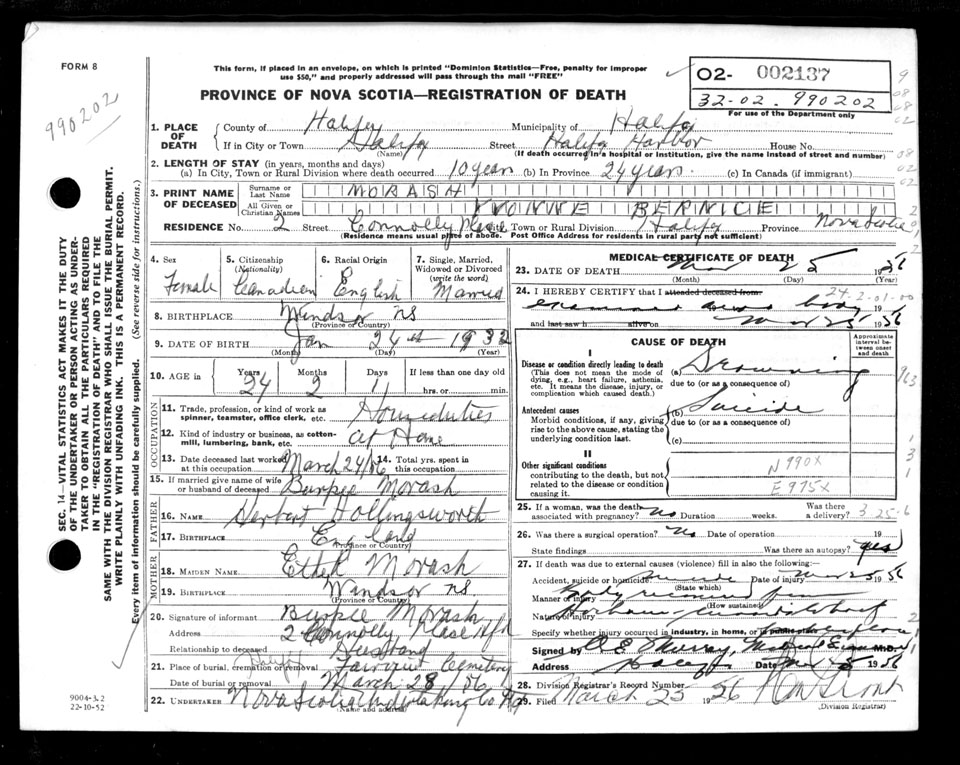 FORM 8
990202
This form, if placed in an envelope, on which is printed "Dominion Statistics—Free, penalty for improper
use $50," and properly addressed will pass through the mail "FREE"
PROVINCE OF NOVA SCOTIA—REGISTRATION OF DEATH
02- 002137
32-02. 990202
For use of the Department only
SEC. 14—VITAL STATISTICS ACT MAKES IT THE DUTY
OF THE UNDERTAKER OR PERSON ACTING AS UNDER-
TAKER TO OBTAIN ALL THE PARTICULARS REQUIRED
IN THE "REGISTRATION OF DEATH" AND TO FILE THE
SAME WITH THE DIVISION REGISTRAR WHO SHALL ISSUE THE BURIAL PERMIT.
WRITE PLAINLY WITH UNFADING INK. THIS IS A PERMANENT RECORD.
Every item of information should be carefully supplied. (See reverse side for instructions.)
1. PLACE OF DEATH
County of Halifax Municipality of Halifax
If in City or Town Halifax Street Halifax Harbor House No.
(Name) (If death occurred in a hospital or institution, give the name instead of street and number)
2. LENGTH OF STAY (in years, months and days)
(a) In City, Town or Rural Division where death occurred 10 years (b) In Province 24 years. (c) In Canada (if immigrant)
3. PRINT NAME OF DECEASED
Surname or Last Name MORASH
All Given or Christian Names YVONNE BERNICE
RESIDENCE No. 2 Street Connolly Place Town or Rural Division Halifax Province Nova Scotia
(Residence means usual place of abode. Post Office Address for residents in rural parts not sufficient)
4. Sex Female
5. Citizenship (Nationality) Canadian
6. Racial Origin English
7. Single, Married, Widowed or Divorced (write the word) Married
8. BIRTHPLACE Windsor NS
(Province or Country)
9. DATE OF BIRTH Jan 24th 1932
(Month) (Day) (Year)
10. AGE in Years 24 Months 2 Days 1 If less than one day old hrs. or min.
OCCUPATION
11. Trade, profession, or kind of work as spinner, teamster, office clerk, etc. Houseduties
12. Kind of industry or business, as cotton-mill, lumbering, bank, etc. at Home
13. Date deceased last worked at this occupation March 24/56 14. Total yrs. spent in this occupation
15. If married give name of wife or husband of deceased Burpie Morash
FATHER
16. NAME Herbert Hollingsworth
17. BIRTHPLACE England
(Province or Country)
MOTHER
18. MAIDEN NAME Ethel Morash
19. BIRTHPLACE Windsor NS
(Province or Country)
20. Signature of informant Burpie Morash
Address 2 Connolly Place Hfx
Relationship to deceased Husband
21. Place of burial, cremation or removal Halifax Fairview Cemetery
Date of burial or removal March 28/56
22. UNDERTAKER Nova Scotia Undertaking Co Hfx
(Name and address)
9004-3.2
22-10-52
MEDICAL CERTIFICATE OF DEATH
23. DATE OF DEATH Mar 25 1956
(Month) (Day) (Year)
24. I HEREBY CERTIFY that I attended deceased from
24-2-01-00
and last saw h alive on Mar 25 1956
CAUSE OF DEATH
Approximate interval between onset and death
I
Disease or condition directly leading to death
(This does not mean the mode of dying, e.g., heart failure, asthenia, etc. It means the disease, injury, or complication which caused death.)
(a) Drowning
due to (or as a consequence of)
Antecedent causes
Morbid conditions, if any, giving rise to the above cause, stating the underlying condition last.
(b) Suicide
due to (or as a consequence of)
(c)
II
Other significant conditions
contributing to the death, but not related to the disease or condition causing it.
N 990X
E 975X
25. If a woman, was the death associated with pregnancy? No Duration weeks. Was there a delivery? 3-25-6
26. Was there a surgical operation? No Date of operation 19
State findings Was there an autopsy? yes
27. If death was due to external causes (violence) fill in also the following:—
Accident, suicide or homicide? Suicide Date of injury Mar 25 1956
(State which)
Manner of injury Body recovered from
(How sustained)
Nature of injury
Specify whether injury occurred in industry, in home, or in public place
Signed by Murray, Medical M.D.
Address Halifax Date 1956
28. Division Registrar's Record Number
29. Filed March 25 1956
(Division Registrar)